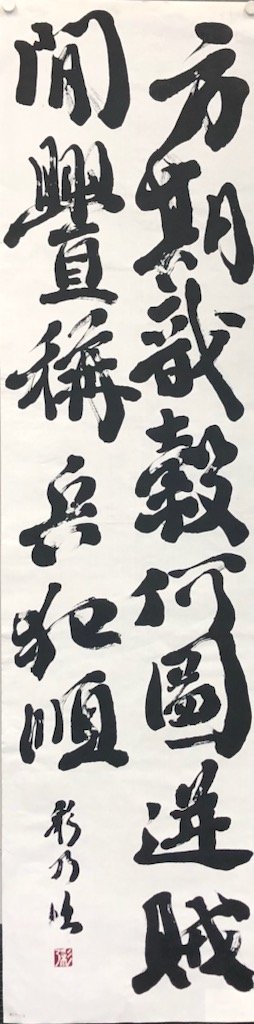 方期戩穀何圖逆賊
閒舋稱兵犯順
彩乃